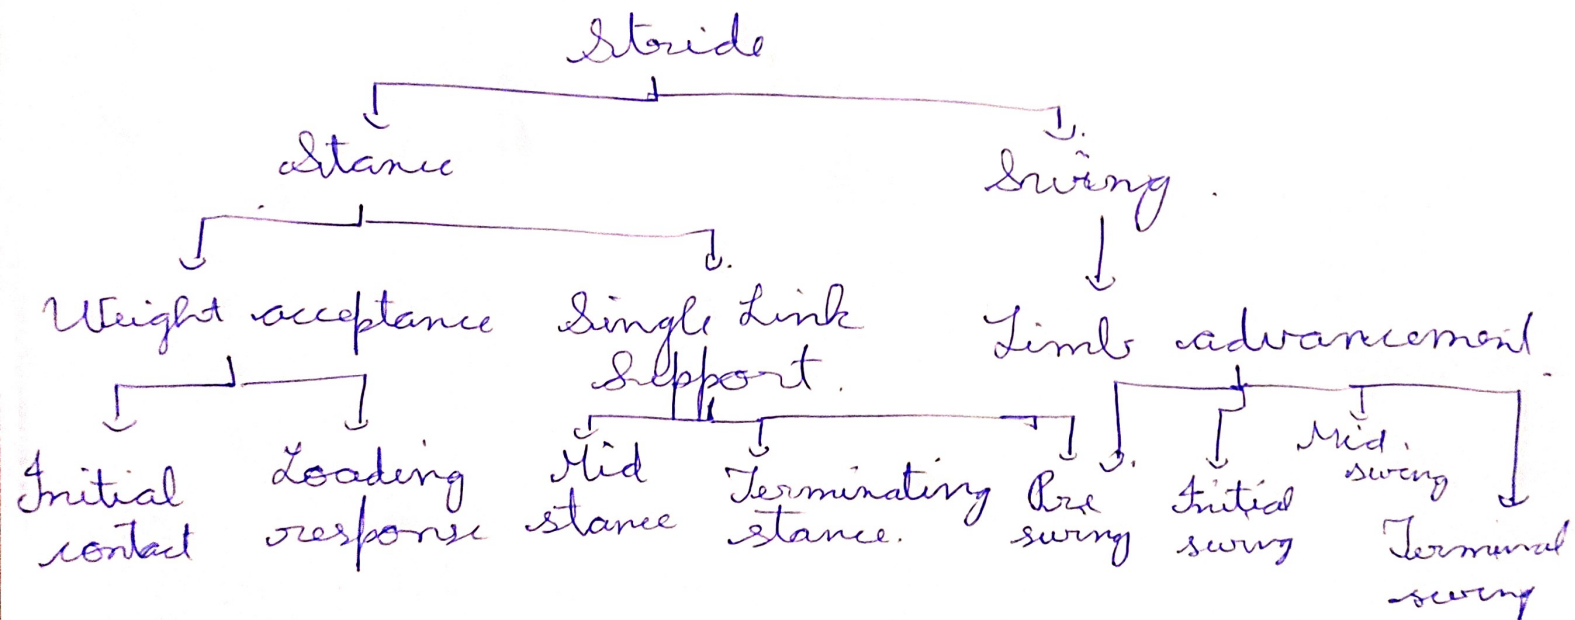 Stride
Stance
Swing
Weight acceptance
Single Link
Support.
Limb advancement
Initial
contact
Loading
response
Mid
stance
Terminating
stance.
Pre
swing
Initial
swing
Mid
swing
Terminal
swing